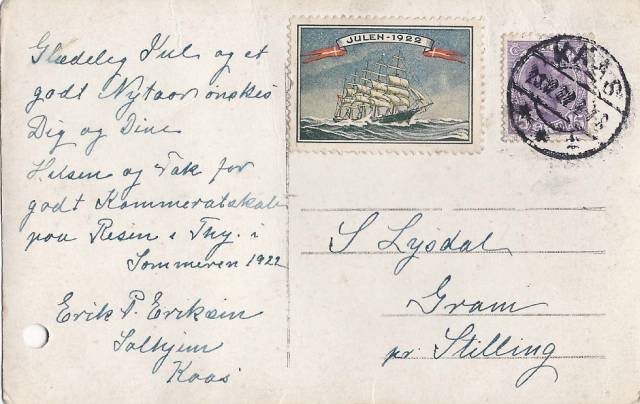 Glædelig Jul og et
godt Nytaar ønskes
Dig og Dine
Hilsen og Tak for
godt Kammeratskab
paa Resen i Thy. i
Sommeren 1922
Erik P. Eriksen
Solhjem
Kaas
JULEN - 1922
KAAS
S Lysdal
Gram
pr. Stilling